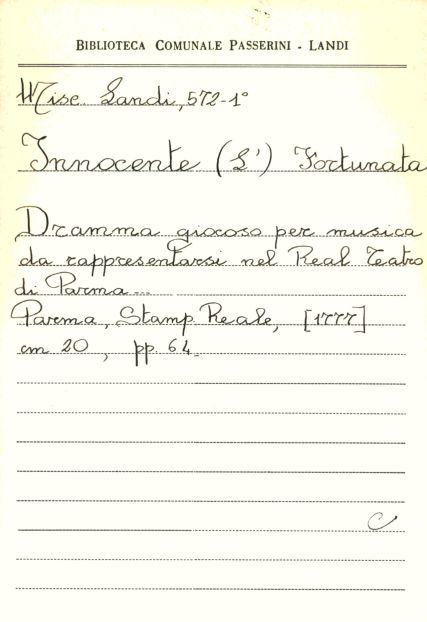 BIBLIOTECA COMUNALE PASSERINI - LANDI
Misc. Landi, 572-1°
Innocente (L') Fortunata
Dramma giocoso per musica
da rappresentarsi nel Real Teatro
di Parma...
Parma, Stamp. Reale, [1777]
cm 20, pp. 64.
C